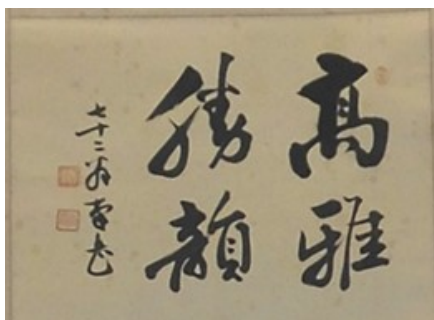 高雅
勝韻
七十二翁